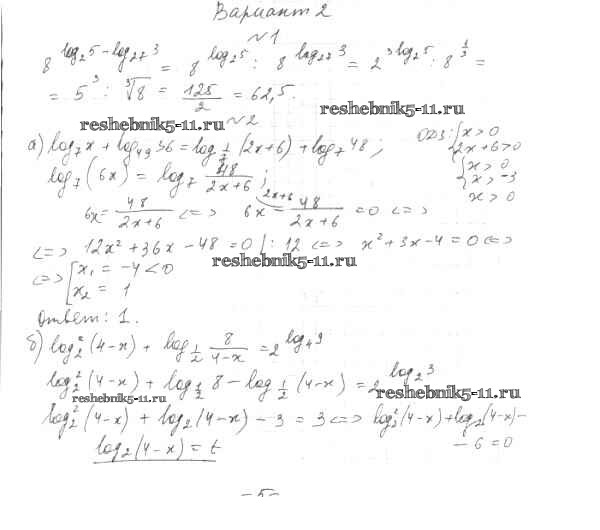 Вариант 2
№1
8^{log_2 5 - log_{27} 3} = 8^{log_2 5} : 8^{log_{27} 3} = 2^{3 log_2 5} : 8^{1/3} =
= 5^3 : ∛8 = 125/2 = 62,5.
reshebnik5-11.ru
reshebnik5-11.ru
№2
а) log_7 x + log_{49} 36 = log_{1/7} (2x+6) + log_7 48 ;
ОДЗ: { x > 0
2x+6 > 0
{ x > 0
x > -3
x > 0
log_7 (6x) = log_7 48/(2x+6) ;
6x = 48/(2x+6) <=> 6x^{2x+6} - 48/(2x+6) = 0 <=>
<=> 12x² + 36x - 48 = 0 |: 12 <=> x² + 3x - 4 = 0 <=>
reshebnik5-11.ru
<=> [ x_1 = -4 < 0
x_2 = 1
Ответ: 1.
б) log_2² (4-x) + log_{1/2} 8/(4-x) = 2^{log_4 9}
log_2² (4-x) + log_{1/2} 8 - log_{1/2} (4-x) = 2^{log_2 3}
reshebnik5-11.ru
reshebnik5-11.ru
log_2² (4-x) + log_2 (4-x) - 3 = 3 <=> log_2² (4-x) + log_2 (4-x) -
- 6 = 0
log_2 (4-x) = t
- 5 -